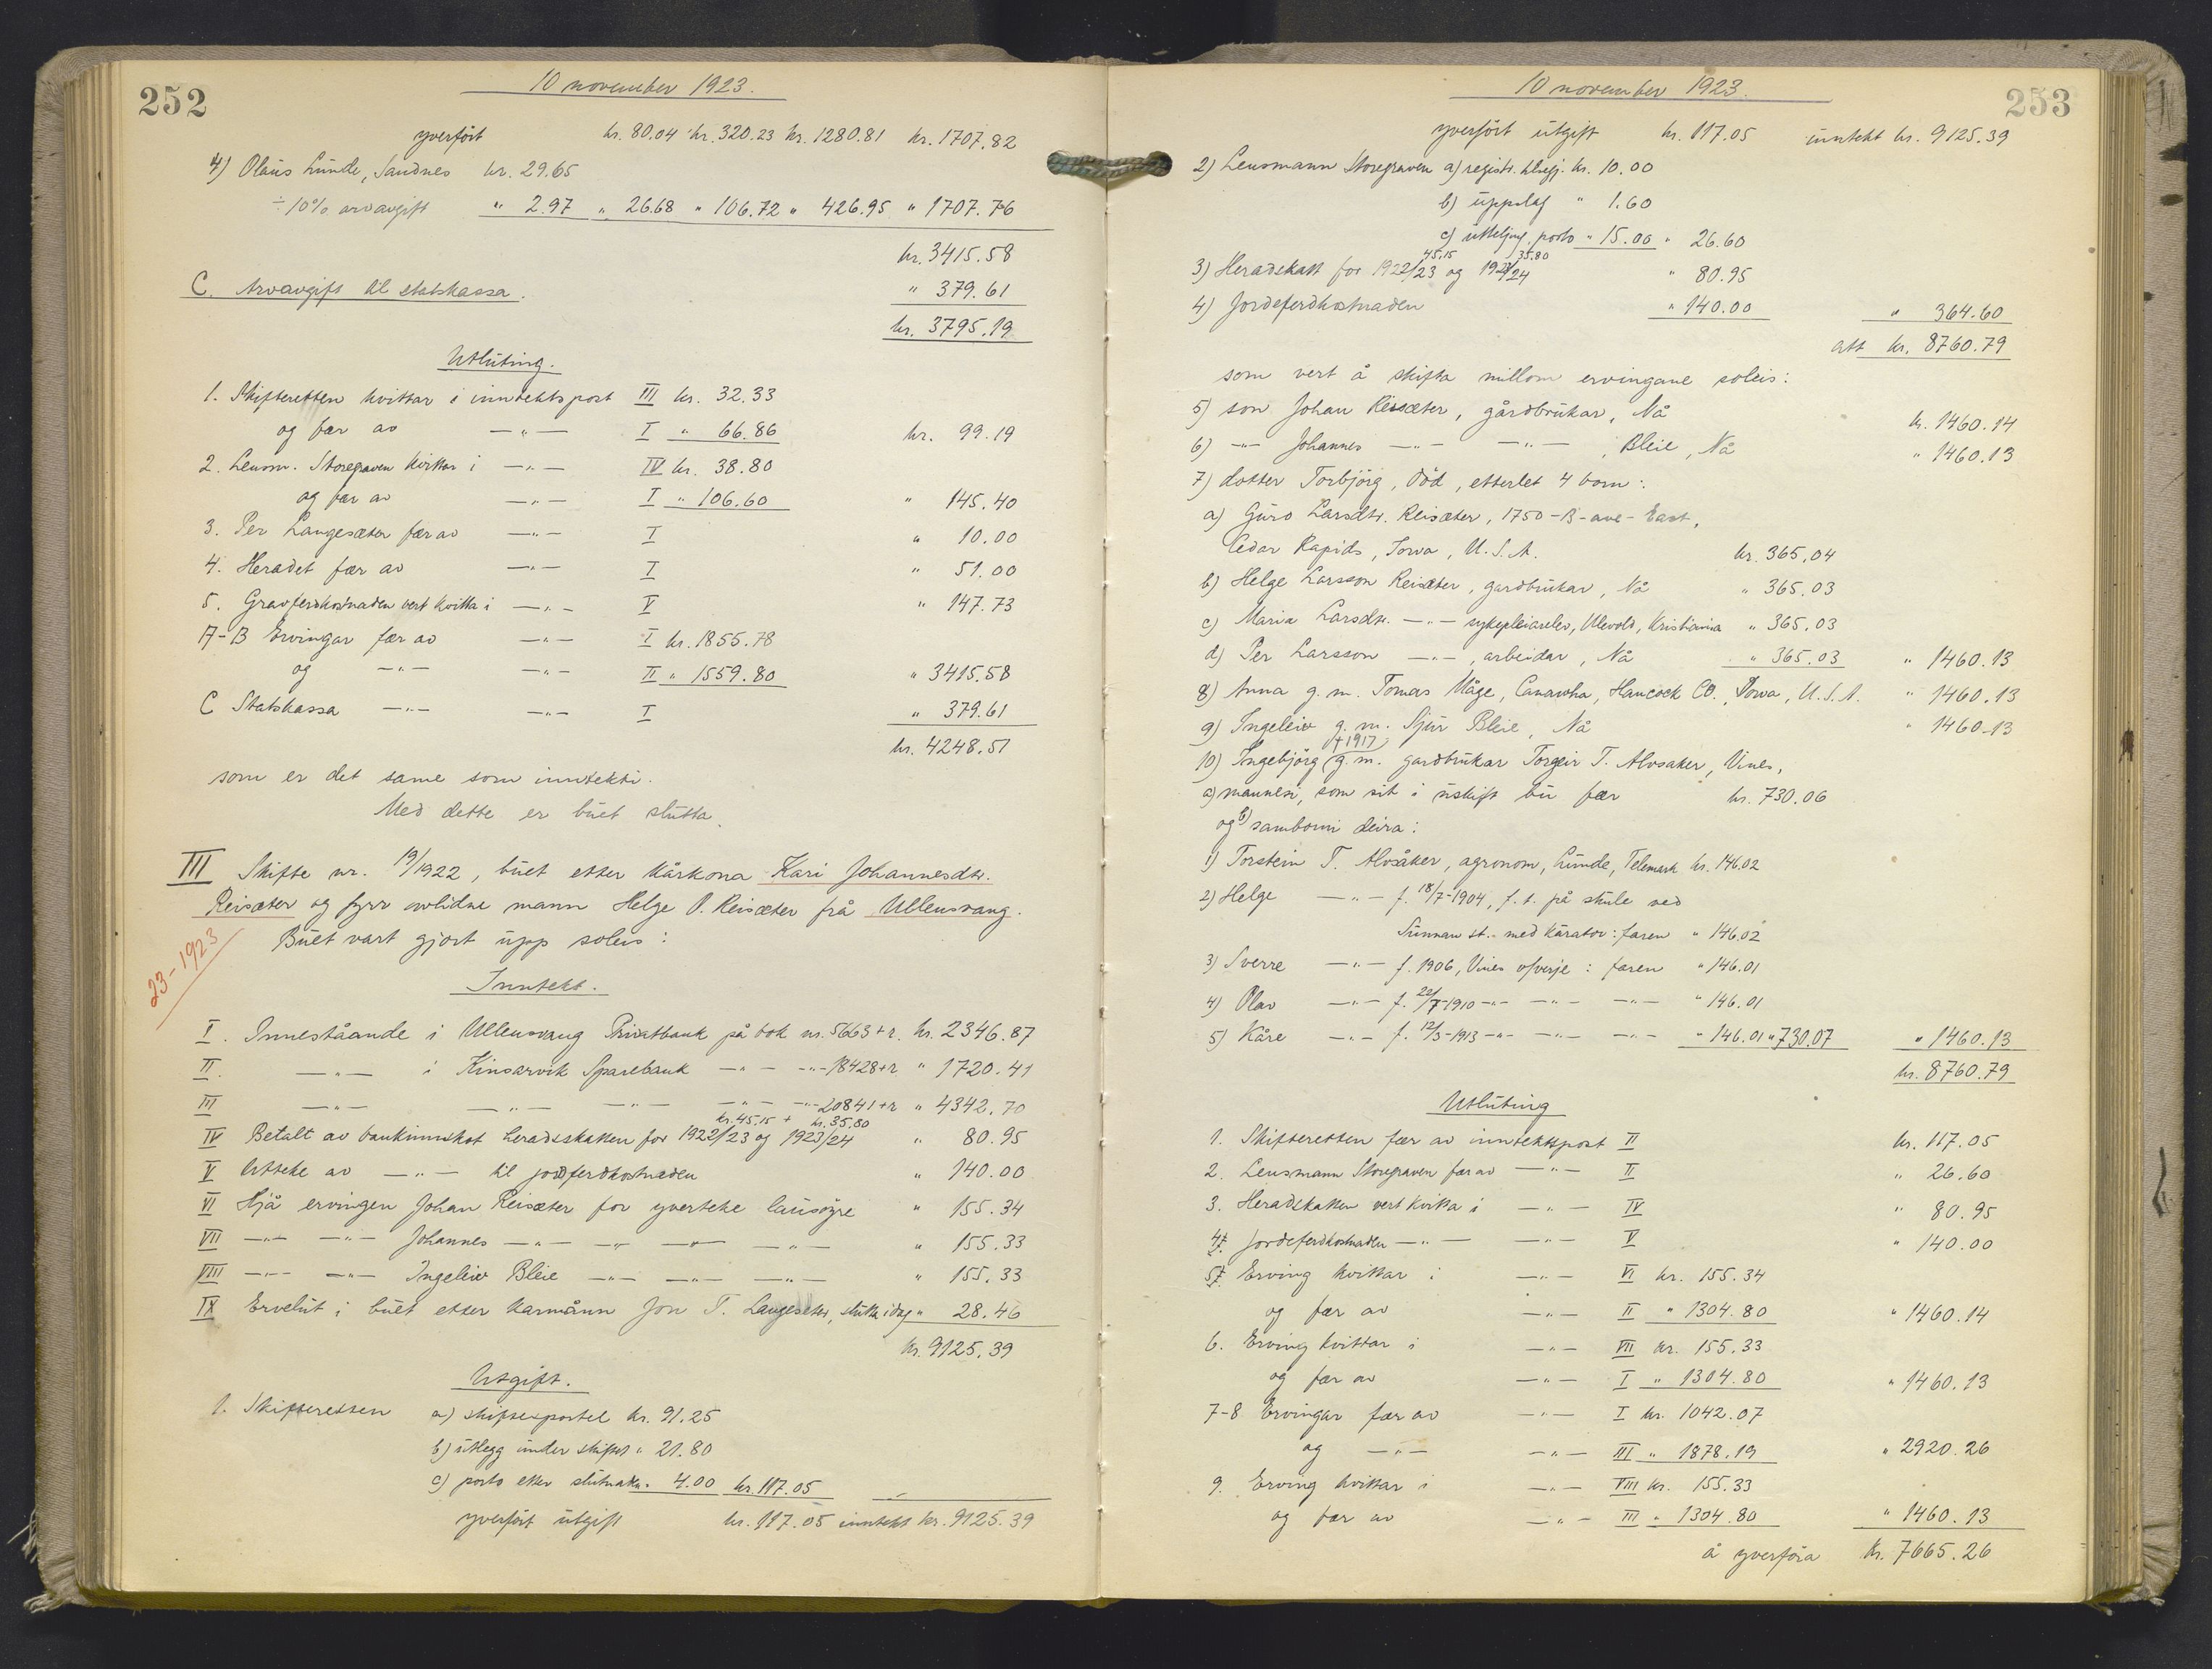 252
10 november 1923.
yverført kr. 80.04 kr. 320.23 kr. 1280.81 kr. 1707.82
4) Olaus Lunde, Sandnes kr. 29.65
÷ 10% arvavgift " 2.97 " 26.68 " 106.72 " 426.95 " 1707.76
kr. 3415.58
C. Arvavgift til statskassa. " 379.61
kr. 3795.19
Utluting.
1. Skifteretten kvittar i inntektspost III kr. 32.33
og fær av —"— I " 66.86 kr. 99.19
2. Lensm. Storegraven kvittar i —"— IV kr. 38.80
og fær av —"— I " 106.60 " 145.40
3. Per Langesæter fær av —"— I " 10.00
4. Heradet fær av —"— I " 51.00
5. Gravferdkostnaden vert kvitta i —"— V " 147.73
A-B Ervingar fær av —"— I kr. 1855.78
og —"— —"— II " 1559.80 " 3415.58
C Statskassa —"— —"— I " 379.61
kr. 4248.51
som er det same som inntekti.
Med dette er buet slutta.
III Skifte nr. 19/1922, buet etter kårkona Kari Johannesdtr.
Reisæter og fyrr avlidne mann Helge O. Reisæter frå Ullensvang.
23-1923
Buet vart gjort upp soleis:
Inntekt.
I. Inneståande i Ullensvang Privatbank på bok nr. 5663 + r. kr. 2346.87
II. —"— i Kinsarvik Sparebank —"— —"— 18428 + r " 1720.41
III —"— —"— —"— —"— —"— 20841 + r " 4342.70
kr. 45.15 + kr. 35.80
IV Betalt av bankinnskot heradsskatten for 1922/23 og 1923/24 " 80.95
V Utteke av —"— til jordferdkostnaden " 140.00
VI Hjå ervingen Johan Reisæter for yverteke lausøyre " 155.34
VII —"— —"— Johannes —"— —"— —"— —"— " 155.33
VIII —"— —"— Ingeleiv Bleie —"— —"— —"— " 155.33
IX Ervelut i buet etter kårmann Jon T. Langesæter, slutta idag " 28.46
kr. 9125.39
Utgift.
1. Skifteretten a) skiftesportel kr. 91.25
b) utlegg under skiftet " 21.80
c) porto etter slutnaden " 4.00 kr. 117.05
yverført utgift kr. 117.05 inntekt kr. 9125.39
253
10 november 1923.
yverført utgift kr. 117.05 inntekt kr. 9125.39
2) Lensmann Storegraven a) registr. tilsegj. kr. 10.00
b) uppslag " 1.60
c) utteljing, porto " 15.00 " 26.60
45.15 35.80
3) Heradskatt for 1922/23 og 1923/24 " 80.95
4) Jordeferdkostnaden " 140.00 " 364.60
att kr. 8760.79
som vert å skifta millom ervingane soleis:
5) son Johan Reisæter, gårdbrukar, Nå kr. 1460.14
6) —"— Johannes —"— —"—, Bleie, Nå " 1460.13
7) dotter Torbjörg, död, etterlet 4 born:
a) Guro Larsdtr. Reisæter, 1750 - B - ave - East,
Cedar Rapids, Iowa, U.S.A. kr. 365.04
b) Helge Larsson Reisæter, gardbrukar, Nå " 365.03
c) Maria Larsdtr. —"— sykepleiarelev, Ulevold, Kristiania " 365.03
d) Per Larsson —"—, arbeidar, Nå " 365.03 " 1460.13
8) Anna g. m. Tomas Måge, Canawha, Hancock CO., Iowa, U.S.A. " 1460.13
9) Ingeleiv g. m. Sjur Bleie, Nå " 1460.13
† 1917
10) Ingebjörg g. m. gardbrukar Torgeir T. Alvsaker, Vines,
a) mannen, som sit i uskift bu fær kr. 730.06
og b) samborni deira:
1) Torstein T. Alvsåker, agronom, Lunde, Telemark kr. 146.02
2) Helge —"— f. 18/7-1904, f. t. på skule ved
Sunnan st. - med kurator: faren " 146.02
3) Sverre —"— f. 1906, Vines v/verje: faren " 146.01
4) Olav —"— f. 22/7-1910 —"— —"— —"— " 146.01
5) Kåre —"— f. 12/3-1913 —"— —"— —"— " 146.01 " 730.07 " 1460.13
kr. 8760.79
Utluting
1. Skifteretten fær av inntektspost II kr. 117.05
2. Lensmann Storegraven fær av —"— II " 26.60
3. Heradskatten vert kvitta i —"— IV " 80.95
4. Jordeferdkostnaden —"— —"— V " 140.00
5. Erving kvittar i —"— VI kr. 155.34
og fær av —"— II " 1304.80 " 1460.14
6. Erving kvittar i —"— VII kr. 155.33
og fær av —"— I " 1304.80 " 1460.13
7-8 Ervingar fær av —"— I kr. 1042.07
og —"— —"— III " 1878.19 " 2920.26
9. Erving kvittar i —"— VIII kr. 155.33
og fær av —"— III " 1304.80 " 1460.13
å yverföra kr. 7665.26